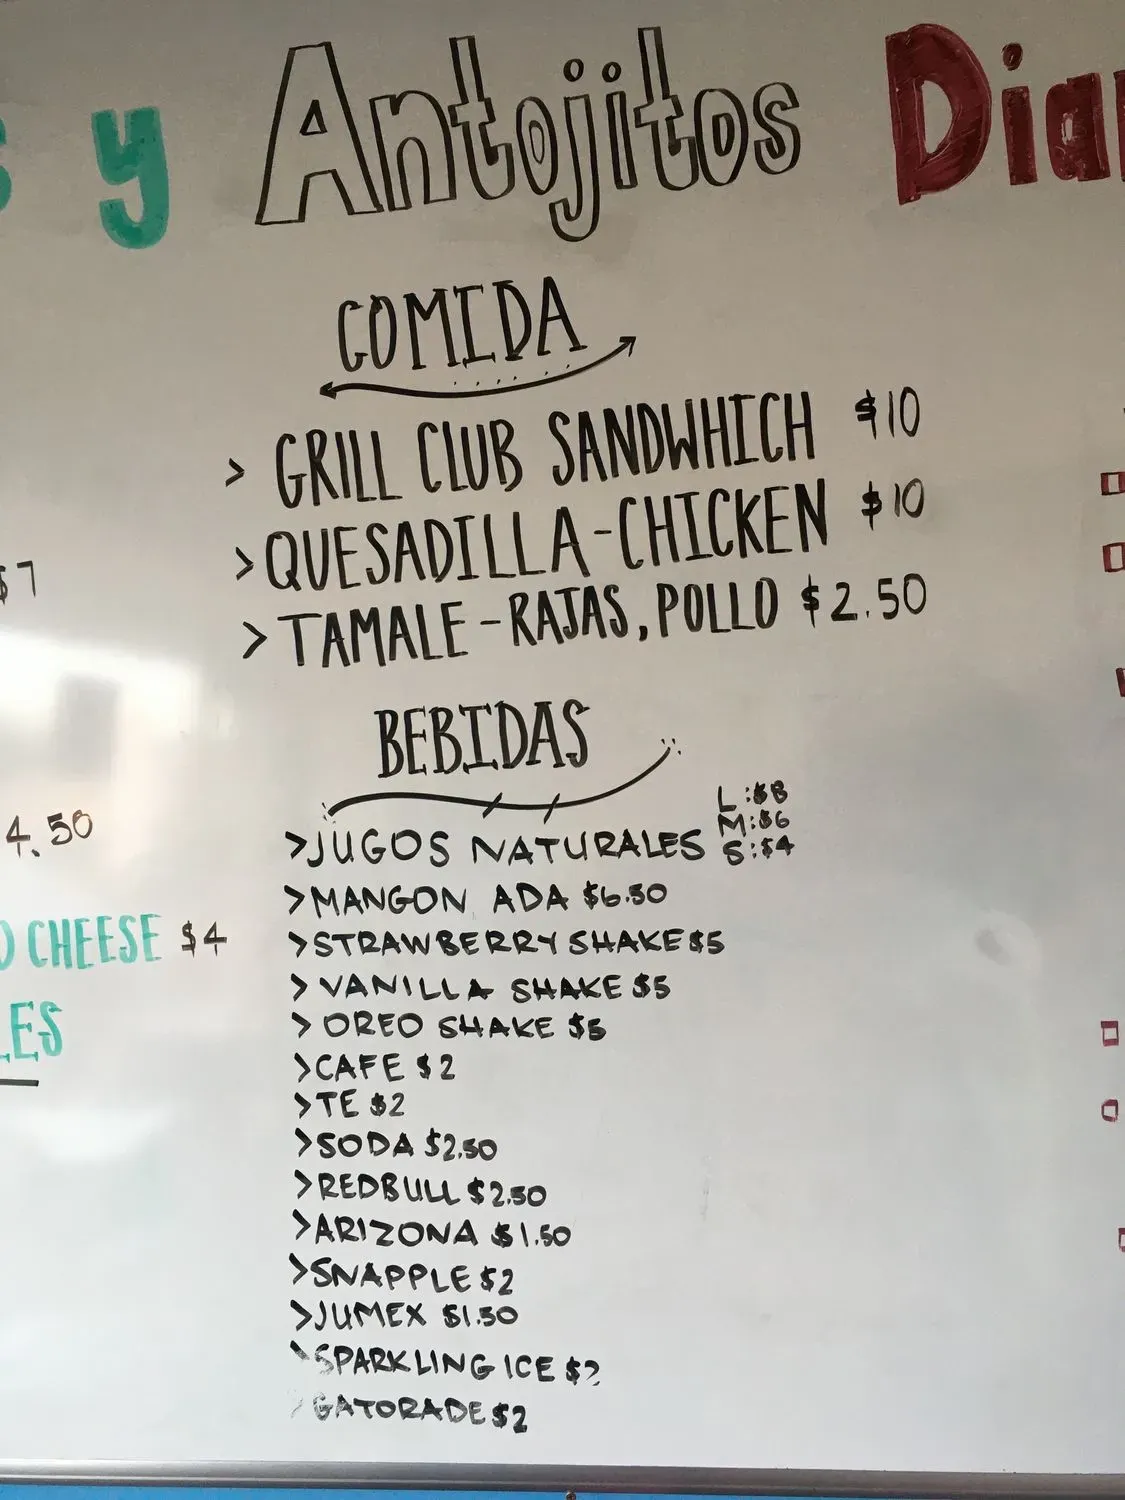 y Antojitos Dia
COMIDA
> GRILL CLUB SANDWHICH $10
> QUESADILLA-CHICKEN $10
> TAMALE-RAJAS, POLLO $2.50
BEBIDAS
> JUGOS NATURALES L:$8
M:$6
S:$4
> MANGON ADA $6.50
> STRAWBERRY SHAKE $5
> VANILLA SHAKE $5
> OREO SHAKE $5
> CAFE $2
> TE $2
> SODA $2.50
> REDBULL $2.50
> ARIZONA $1.50
> SNAPPLE $2
> JUMEX $1.50
> SPARKLING ICE $2
> GATORADE $2
$7
4.50
CHEESE $4
LES